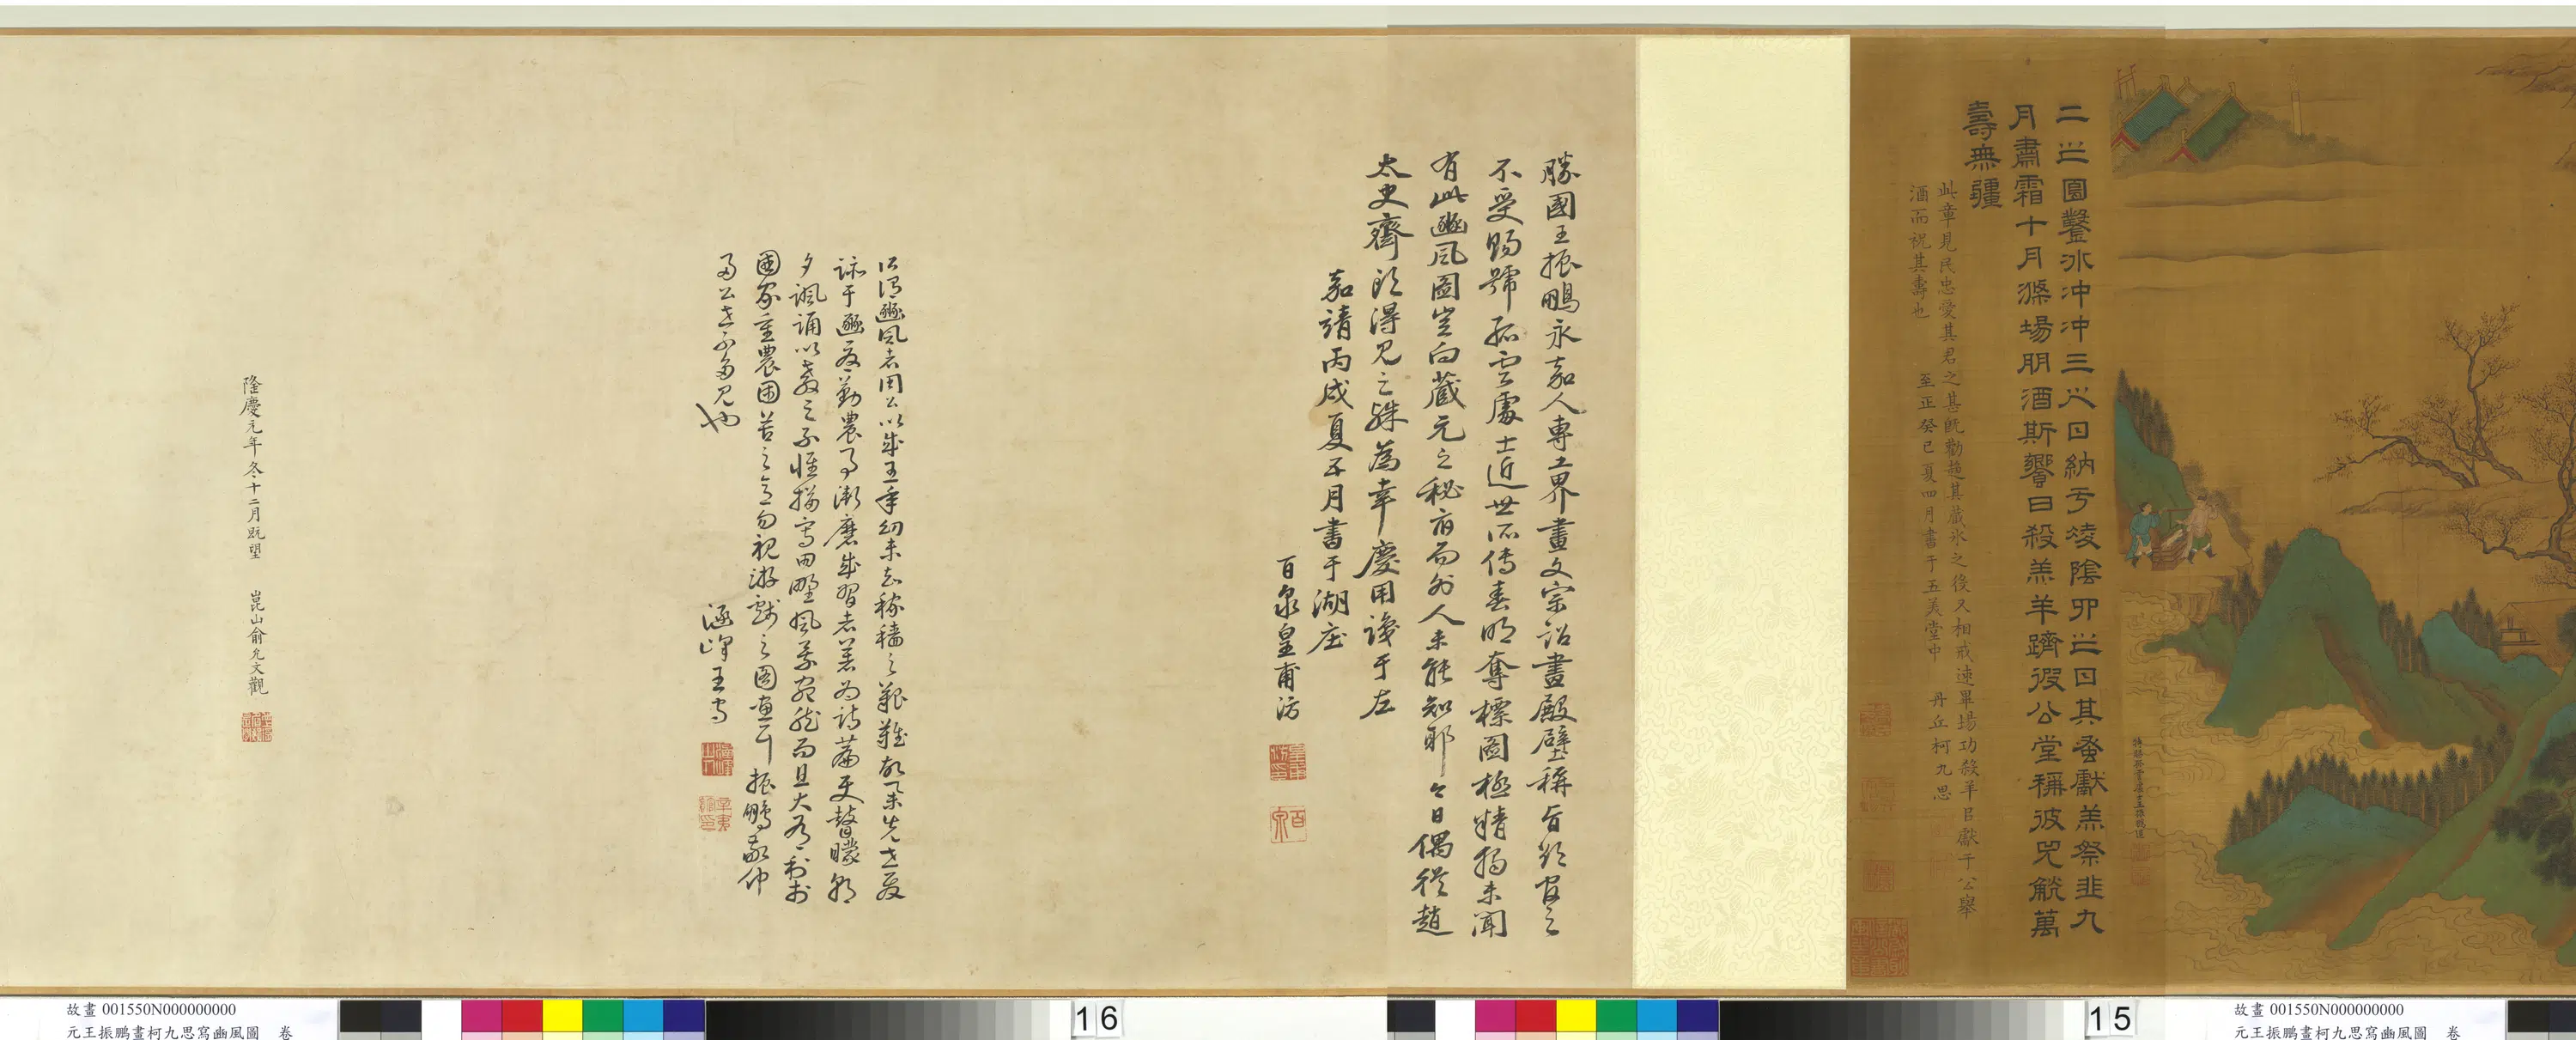 二之日鑿冰冲冲三之日納于凌陰四之日其蚤獻羔祭韭九
月肅霜十月滌場朋酒斯饗曰殺羔羊躋彼公堂稱彼兕觥萬
壽無疆
此章見民忠愛其君之甚既勸趨其藏冰之後又相戒速畢場功殺羊以獻于公舉
酒而祝其壽也 至正癸巳夏四月書于五美堂中 丹丘柯九思
勝國王振鵬永嘉人專工界畫文宗詔畫殿壁稱旨欲官之
不受賜號孤雲處士近世所傳春明奪標圖極精獨未聞
有此豳風圖豈向藏元之秘府而外人未能知耶今日偶從趙
太史齋頭得見之殊為幸慶用識于左
嘉靖丙戌夏五月書于湖庄
百泉皇甫汸
以得豳風者周公以成王年幼未知稼穡之艱難故
迹于豳勤農事漸磨成習者著為詩篇使瞽矇朝
夕諷誦以教之不惟描寫田野風景宛然而且大有利於
國家重農困苦之意勿視游戲之圖畫耳振鵬敬仲
多見也
涵峰王守
隆慶元年冬十二月既望 崑山俞允文觀
16
15
故畫 001550N000000000
元王振鵬畫柯九思寫豳風圖 卷
故畫 001550N000000000
元王振鵬畫柯九思寫豳風圖 卷